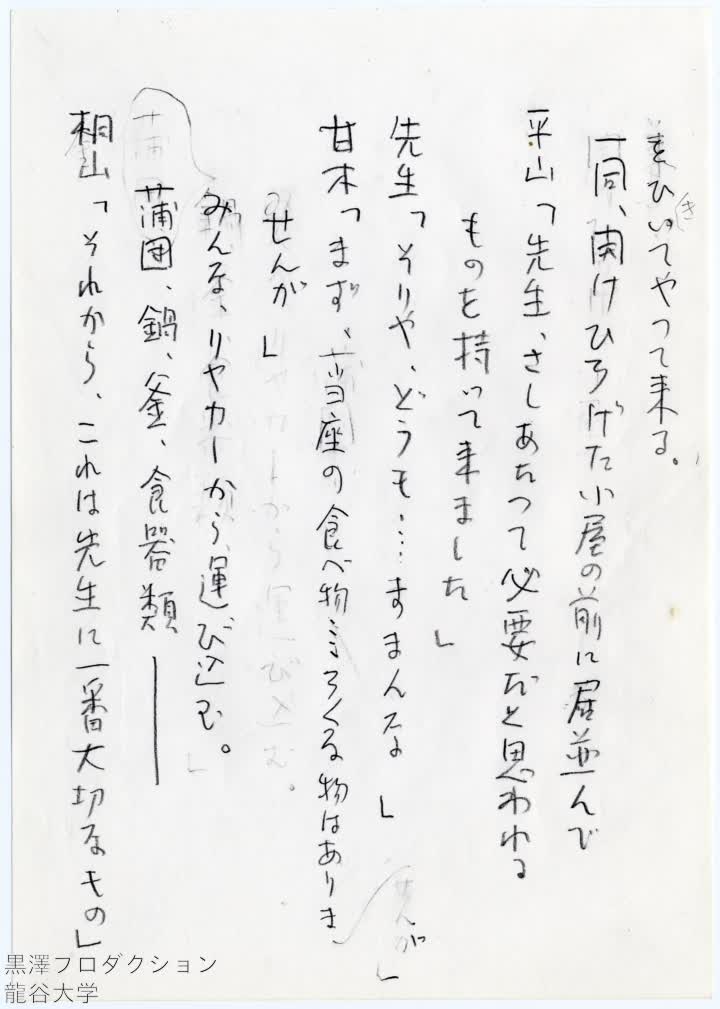 をひいてやって来る。
き
一同、開けひろげた小屋の前に居並んで
平山「先生、さしあたって必要だと思われる
ものを持って来ました」
先生「そりや、どうも……すまんな」
甘木「まず、当座の食べ物……ろくな物はありま
せんが」
せんが」
みんな、リヤカーから運び込む。
蒲団、鍋、釜、食器類――
桐山「それから、これは先生に一番大切なもの」
黒澤プロダクション
龍谷大学